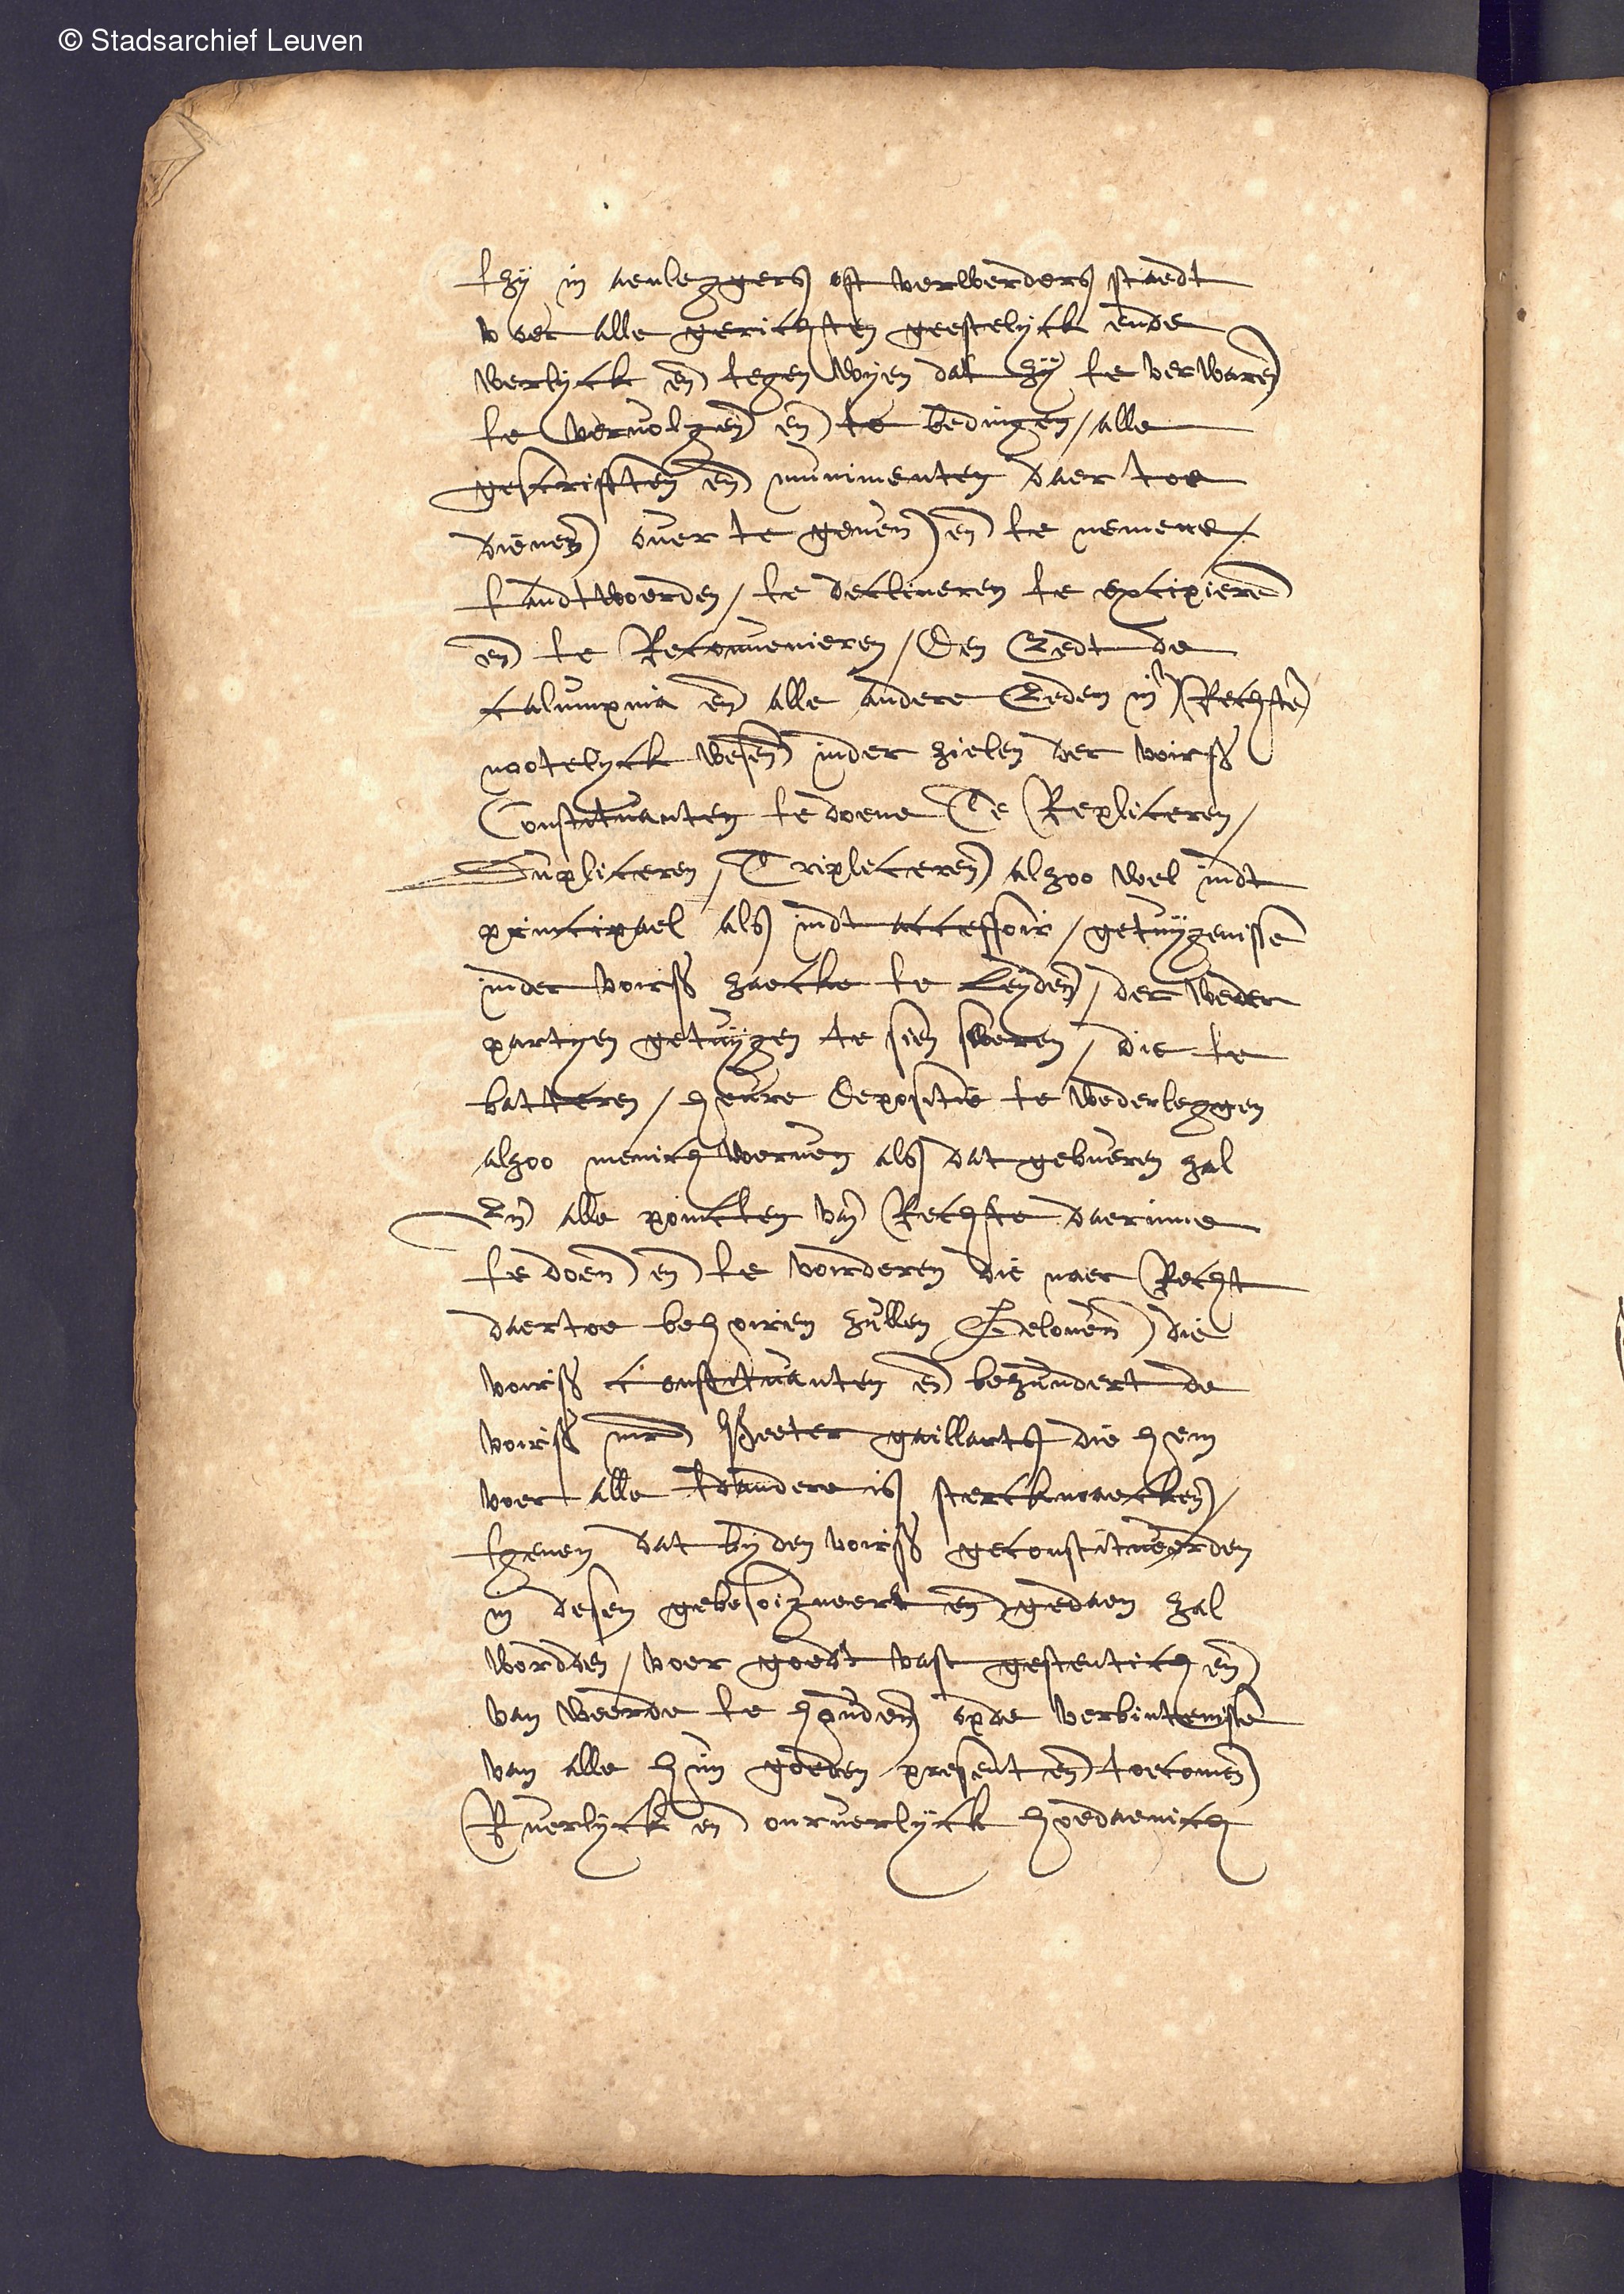 © Stadsarchief Leuven
tzy in aenleggers oft verweerders staedt
voer alle gerichten geestelyck ende
werlyck en̄ tegen wyen dat zy te verwaren̄
te vervolgen̄ en̄ te bedingen / alle
gescriften̄ en̄ munimenten daer toe
dienen̄ over te geven̄ en̄ te nemene /
tandtwoerden / te declineren te excipieren̄
en̄ te Reconvenieren / Den Eedt de
calumpnia en̄ alle andere Eeden in Rechte
nootelyck wesen̄ inder zielen der voirs
Constituanten te doene Te Repliceren /
Dupliceren / Tripliceren̄ alzoo wel indt
principael als indt accessoir / getuygenisse
inder voirs zaecke te Leyden̄ / der weder
partyen getuygen te sien sweren / die te
batteren / heure depositie te wederleggen
alzoo menich werven als dat gebueren zal
En̄ alle poincten van̄ Rechte daerinne
te doen̄ en̄ te voirderen die naer Recht
daertoe behoiren zullen Geloven̄ die
voirs constituanten en̄ bezundert de
voirs mr̄ Peeter gaillarts die hem
voer alle dandere is sterckmaecken̄ /
tgenen dat by den voirs geconstitueerden
in desen gebesoigneert en̄ gedaen zal
wordden / voer goedt vast gestentich en̄
van weerde te houden̄ opde verbintenisse
van alle hun goeden present en̄ toecomen̄
Ruerlyck en̄ onruerlyck hoedaenich